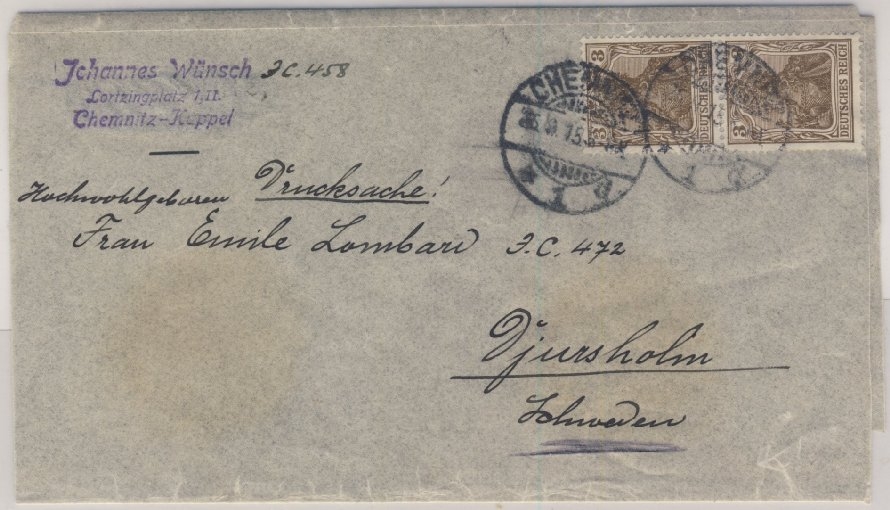 Johannes Wünsch J.C. 458
Lortzingplatz 1, II.
Chemnitz-Kappel
Hochwohlgeboren Drucksache!
Frau Emile Lombard J.C. 472
Djursholm
Schweden
CHEMNITZ
3
DEUTSCHES REICH
3
DEUTSCHES REICH